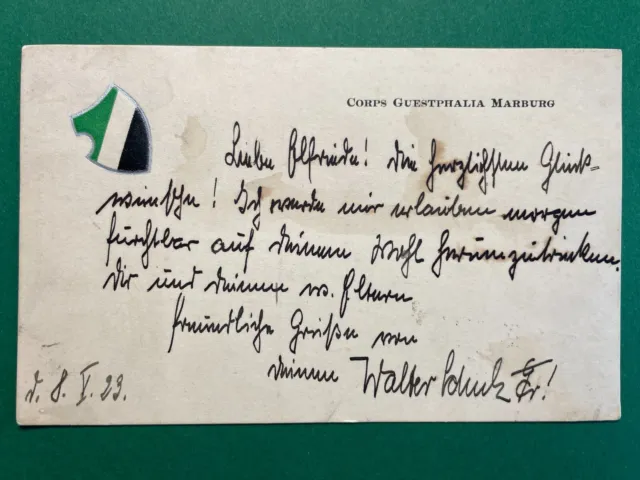 Corps Guestphalia Marburg
Liebe Elfriede! Die herzlichsten Glück-
wünsche! Ich werde mir erlauben morgen
furchtbar auf Deinem Wohl herumzutrinken.
Dir und Deinen w. Eltern
freundliche Grüße von
Deinem Walter
d. 8. V. 23.